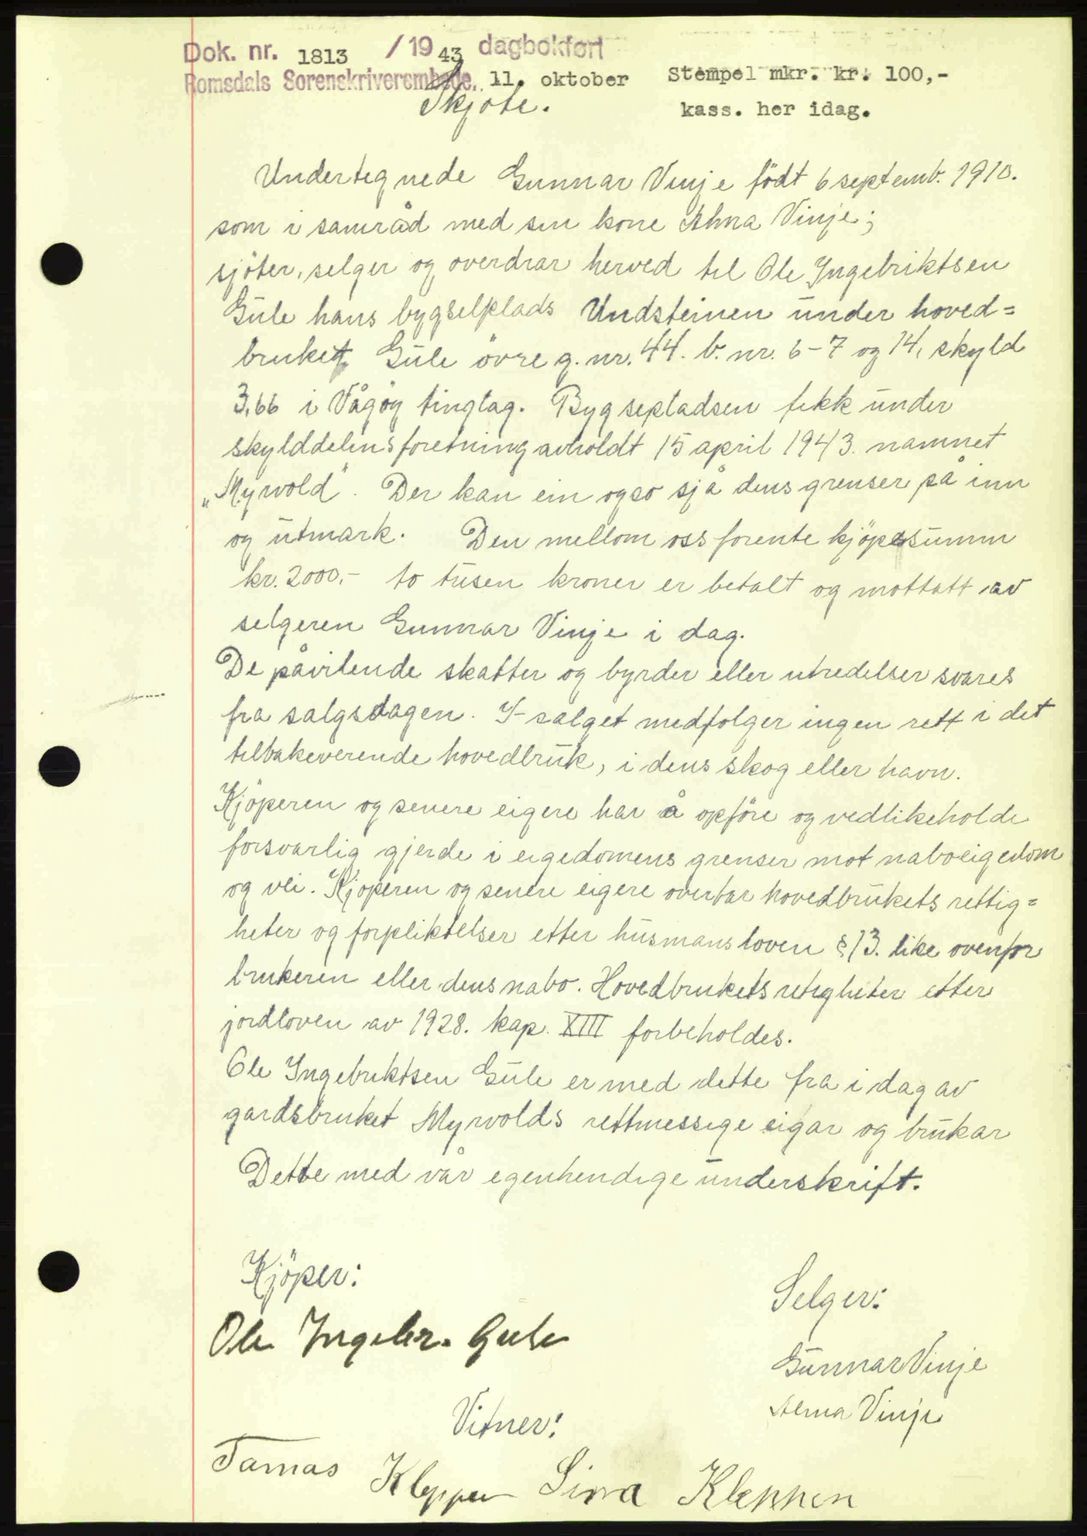 Dok. nr. 1813 /1943 dagbokført
Romsdals Sorenskriverembede, 11. oktober Stempel mkr. kr. 100,-
Skjøte. kass. her idag.
Undertegnede Gunnar Vinje födt 6 septemb. 1910.
som i samråd med sin kone Alma Vinje;
sjöter, selger og overdrar herved til Ole Ingebriktsen
Gule hans bygselplads Undsteinen under hoved=
bruket, Gule övre g. nr. 44. b. nr. 6-7 og 14, skyld
3,66 i Vågöy tinglag. Bygsepladsen fekk under
skylddelinsforetning avholdt 15 april 1943. namnet
„Myrvold". Der kan ein ogso sjå dens grenser på inn
og utmark. Den mellom oss forente kjöpesumm
kr. 2000,- to tusen kroner er betalt og mottatt av
selgeren Gunnar Vinje i dag.
De påvilende skatter og byrder eller utredelser svares
fra salgsdagen. I salget medfolger ingen rett i det
tilbakeverende hovedbruk, i dens skog eller havn.
Kjöperen og senere eigere har å opföre og vedlikeholde
forsvarlig gjerde i eigedomens grenser mot naboeigedom
og vei. Kjöperen og senere eigere overtar hovedbrukets rettig=
heter og forpliktelser etter husmansloven § 13. like ovenfor
brukeren eller dens nabo. Hovedbrukets retigheter etter
jordloven av 1928. kap. XIII forbeholdes.
Ole Ingebriktsen Gule er med dette fra i dag av
gardsbruket Myrvolds rettmessige eigar og brukar
Dette med vår egenhendige underskrift.
Kjöper: Selger:
Ole Ingebr. Gule
Gunnar Vinje
Alma Vinje
Vitner:
Tamas Kleppen Sina Kleppen